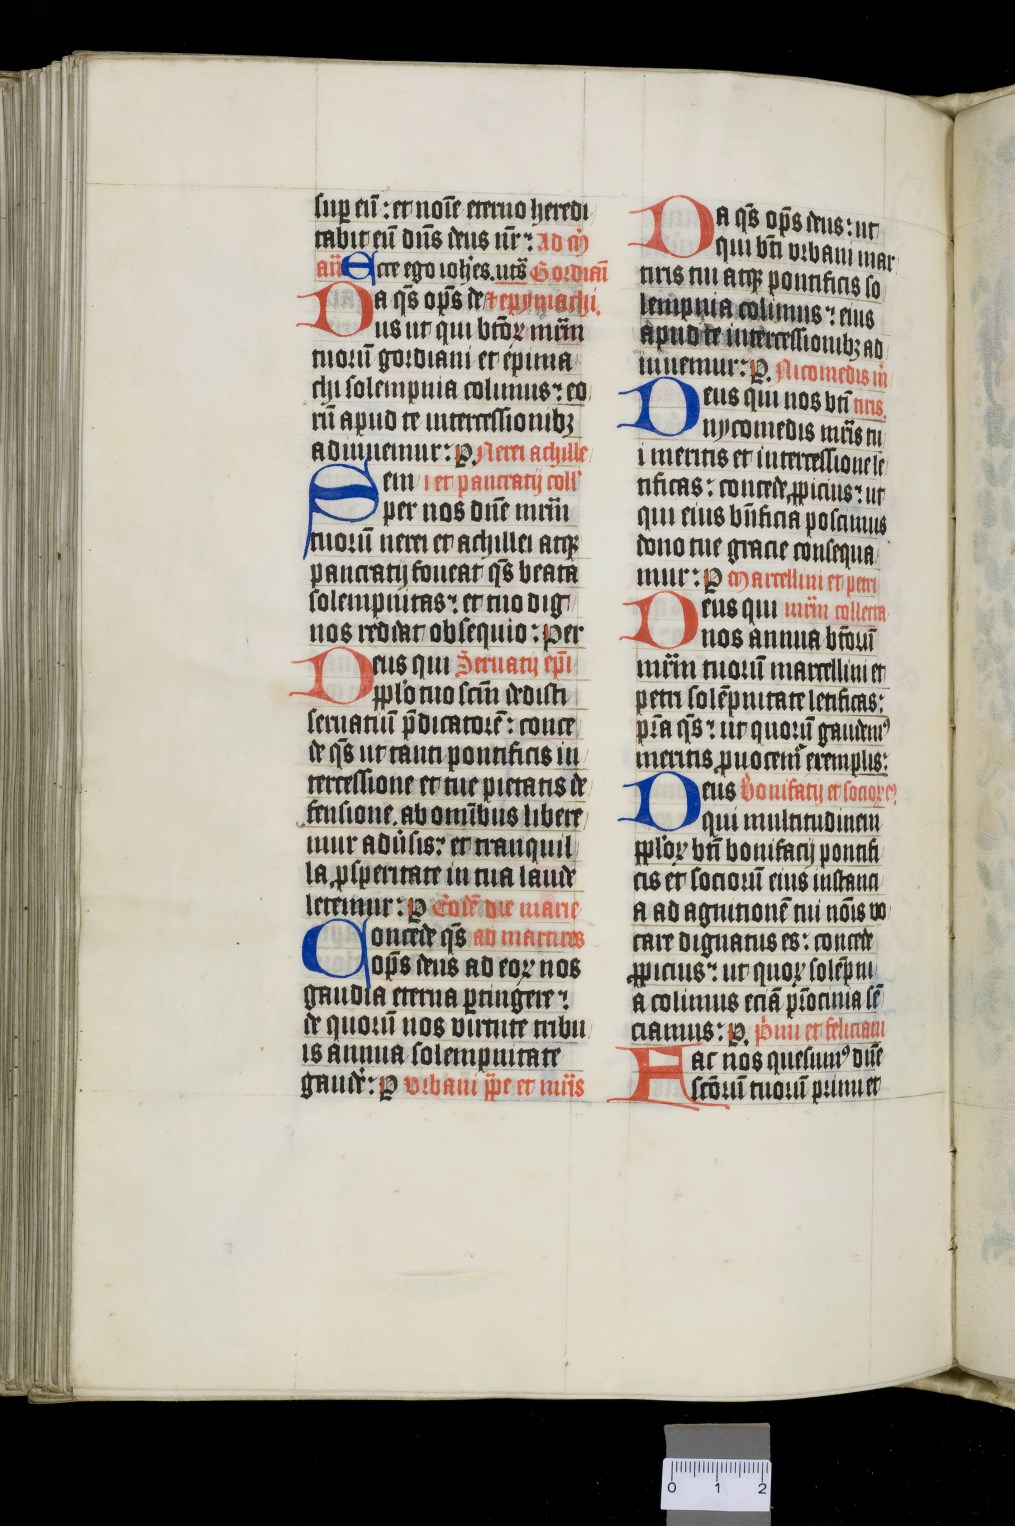 sup eū : et noīe eterno heredi
tabit eū dn̄s deus nr̄ : Ad m̄
an̄ Ecce ego ioh̄es . vts̄ Gordiani
Da qs̄ op̄s de ⁊ epymachi .
us ut qui btōꝝ mr̄m
tuorū gordiani et epima
chi solempnia colimus : eo
rū apud te intercessionibꝫ
adiuuemur : P . Nerei achille
Sem i et pancratij coll'
per nos dn̄e mr̄m
tuorū nerei et achillei atqꝫ
pancratij foueat qs̄ beata
solempnitas : et tuo dig
nos reddat obsequio : Per
Deus qui Seruatij ep̄i
pplo tuo sctm̄ dedisti
seruatiū p̄dicatorē : conce
de qs̄ ut tanti pontificis in
tercessione et tue pietatis de
fensione ab omībus libere
mur adūsis : et tranquil
la ꝓsperitate in tua laude
letemur : P Eodē die marie
Concede qs̄ ad martires
op̄s deus ad eoꝝ nos
gaudia eterna ꝑtingere :
de quorū nos virtute tribu
is annua solempnitate
gaudē : P vrbani p̄pe et mr̄is
Da qs̄ op̄s deus : ut
qui bt̄i vrbani mar
tiris tui atqꝫ pontificis so
lempnia colimus : eius
apud te intercessionibꝫ ad
iuuemur : P . Nicomedis m̄
Deus qui nos bt̄i tiris .
nycomedis mr̄is tu
i meritis et intercessione le
tificas : concede ꝓpicius : ut
qui eius bn̄ficia poscimus
dono tue gracie consequa
mur : P Marcellini et petri
Deus qui mr̄m collecta
nos annua btōrū
mr̄m tuorū marcellini et
petri solēpnitate letificas :
pr̄a qs̄ : ut quorū gaudemꝰ
meritis ꝓuocem̄ exemplis :
Deus Bonifatij et socioꝝ eiꝰ
qui multitudinem
pploꝝ bt̄i bonifacij pontifi
cis et sociorū eius instanci
a ad agnitionē tui nōis vo
care dignatus es : concede
ꝓpicius : ut quoꝝ solēpni
a colimus eciā pr̄ocinia sē
ciamus : P . Primi et feliciani
Fac nos quesumꝰ dn̄e
sctōrū tuorū primi et